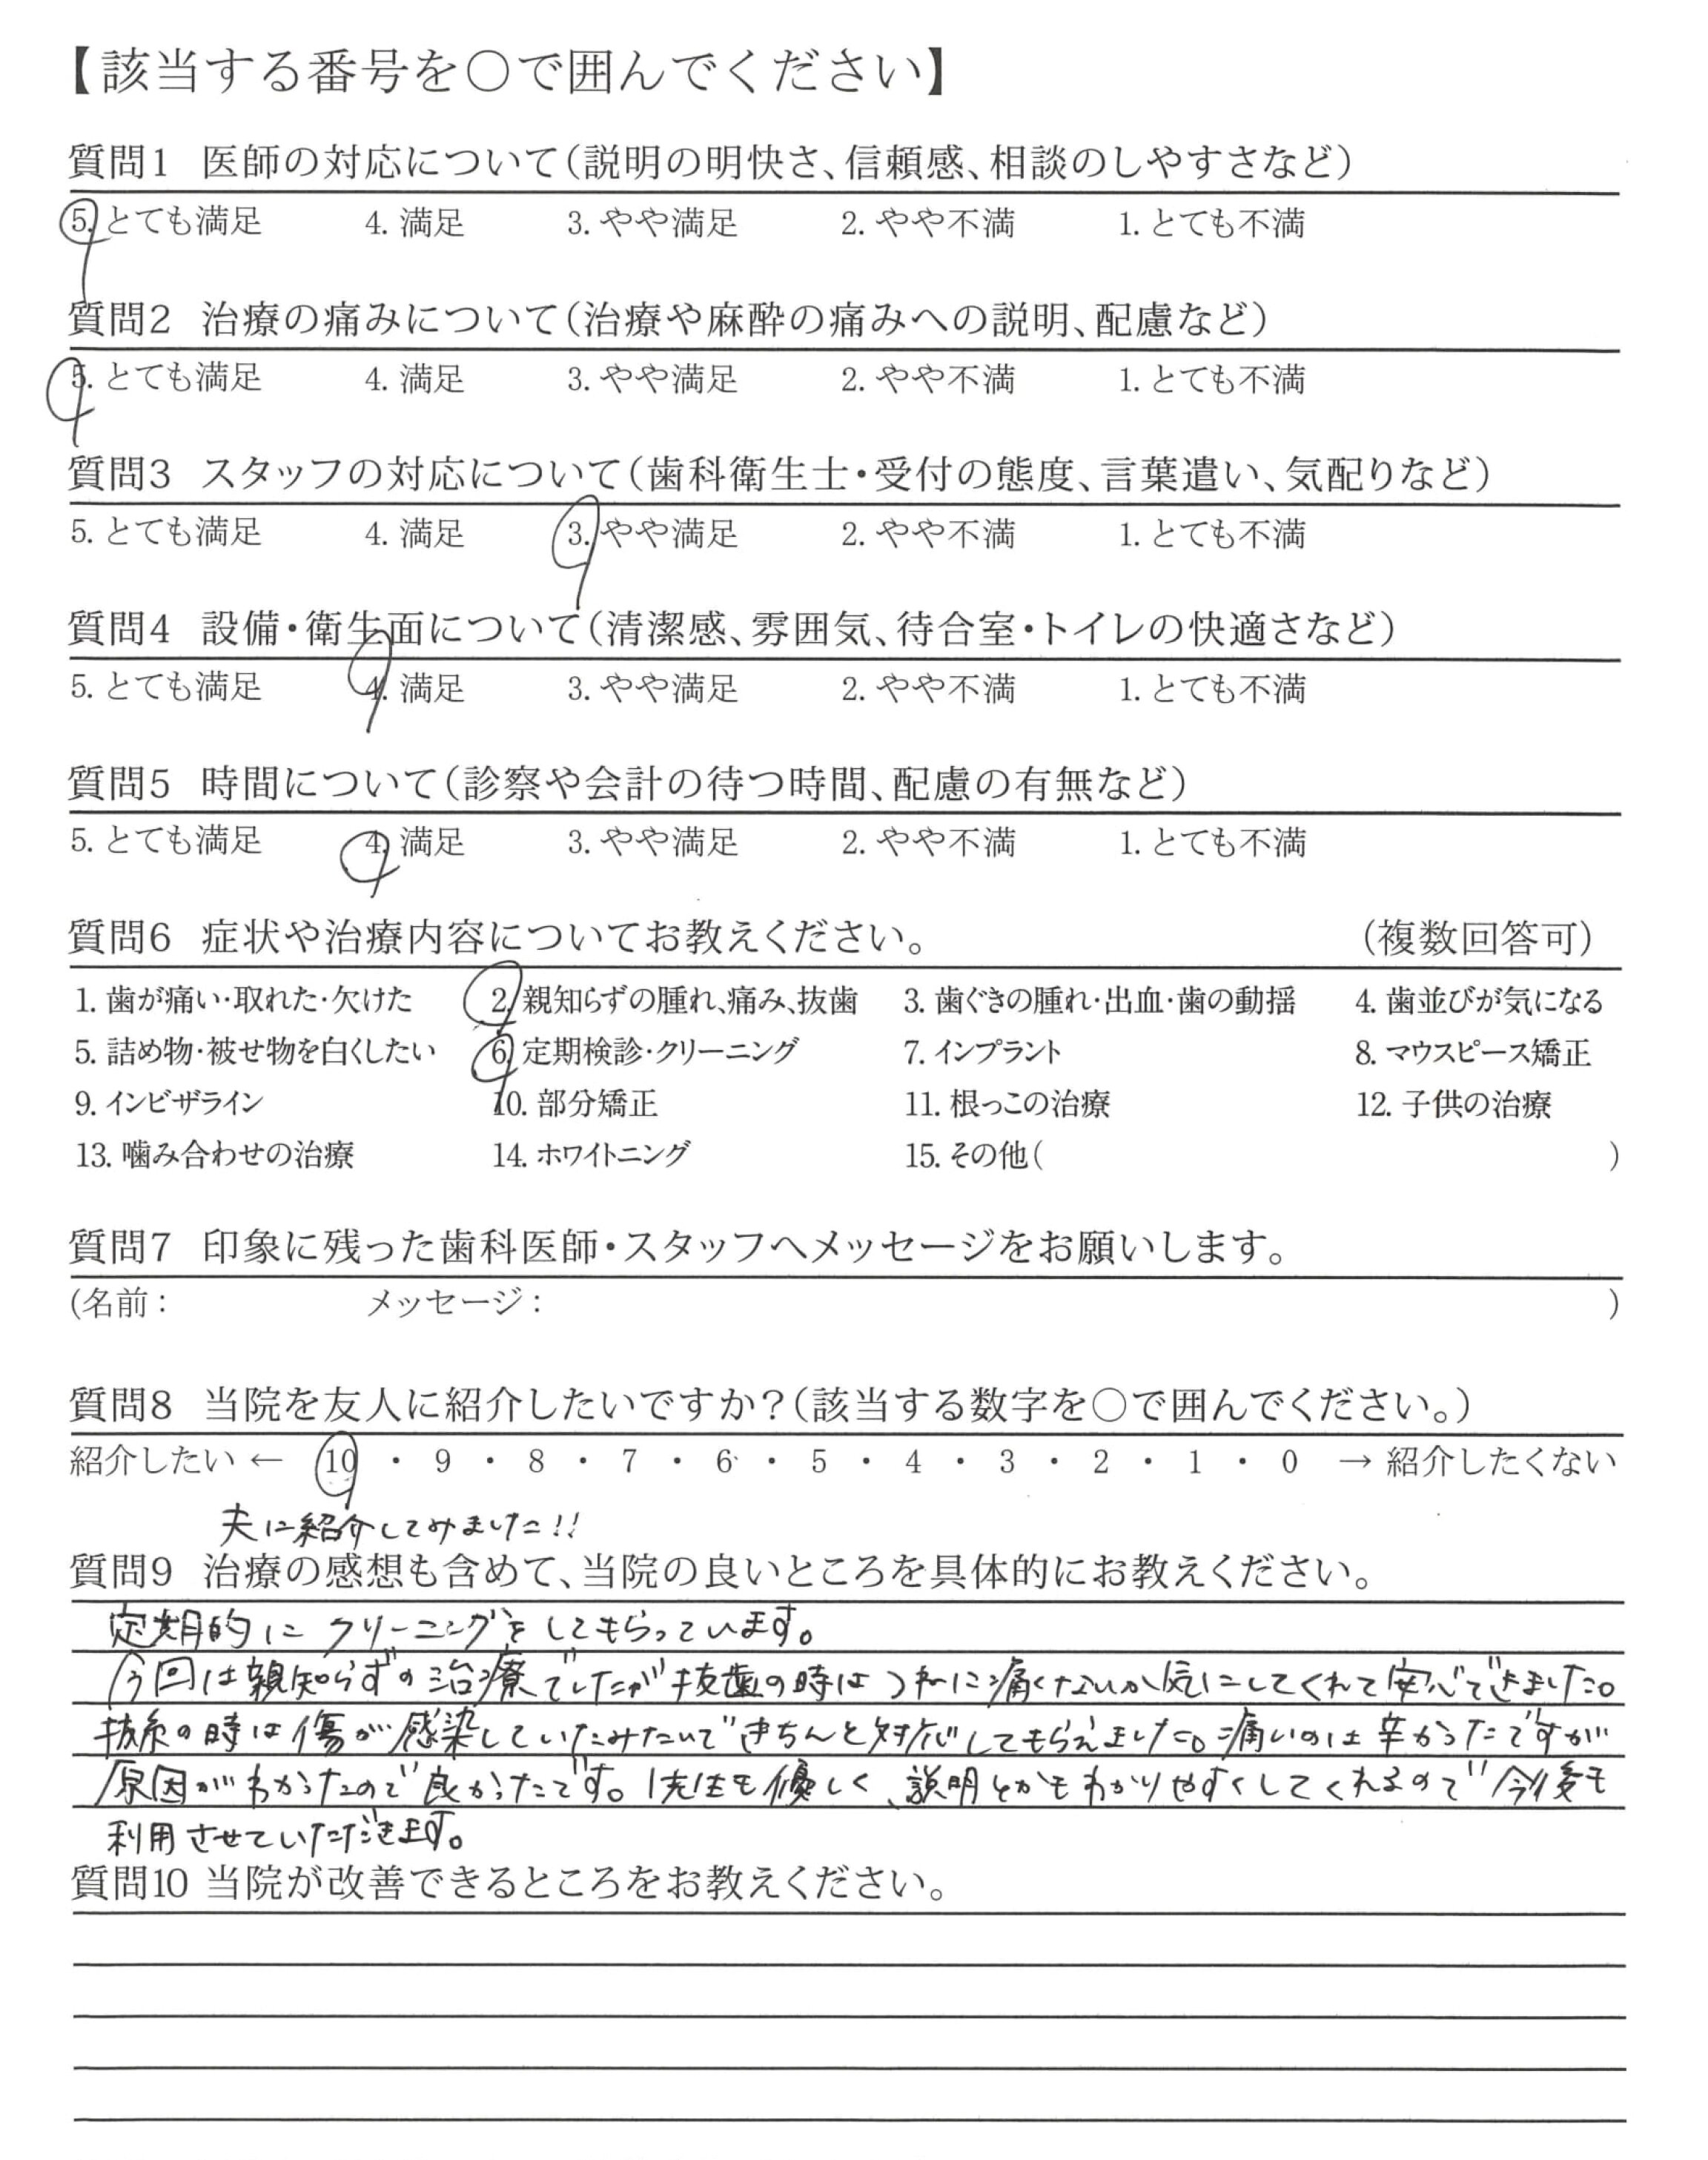 【該当する番号を○で囲んでください】
質問1 医師の対応について(説明の明快さ、信頼感、相談のしやすさなど)
5. とても満足 4. 満足 3. やや満足 2. やや不満 1. とても不満
質問2 治療の痛みについて(治療や麻酔の痛みへの説明、配慮など)
5. とても満足 4. 満足 3. やや満足 2. やや不満 1. とても不満
質問3 スタッフの対応について(歯科衛生士・受付の態度、言葉遣い、気配りなど)
5. とても満足 4. 満足 3. やや満足 2. やや不満 1. とても不満
質問4 設備・衛生面について(清潔感、雰囲気、待合室・トイレの快適さなど)
5. とても満足 4. 満足 3. やや満足 2. やや不満 1. とても不満
質問5 時間について(診察や会計の待つ時間、配慮の有無など)
5. とても満足 4. 満足 3. やや満足 2. やや不満 1. とても不満
質問6 症状や治療内容についてお教えください。 (複数回答可)
1. 歯が痛い・取れた・欠けた 2. 親知らずの腫れ、痛み、抜歯 3. 歯ぐきの腫れ・出血・歯の動揺 4. 歯並びが気になる
5. 詰め物・被せ物を白くしたい 6. 定期検診・クリーニング 7. インプラント 8. マウスピース矯正
9. インビザライン 10. 部分矯正 11. 根っこの治療 12. 子供の治療
13. 噛み合わせの治療 14. ホワイトニング 15. その他( )
質問7 印象に残った歯科医師・スタッフへメッセージをお願いします。
(名前: メッセージ: )
質問8 当院を友人に紹介したいですか?(該当する数字を○で囲んでください。)
紹介したい ← 10 ・ 9 ・ 8 ・ 7 ・ 6 ・ 5 ・ 4 ・ 3 ・ 2 ・ 1 ・ 0 → 紹介したくない
夫に紹介してみました!!
質問9 治療の感想も含めて、当院の良いところを具体的にお教えください。
定期的に クリーニングを してもらっています。
今回は親知らずの治療でしたが抜歯の時は つねに痛くないか気にしてくれて安心できました。
抜糸の時は傷が感染していたみたいできちんと対応してもらえました。痛いのは辛かったですが
原因がわかったので良かったです。先生も優しく、説明とかもわかりやすくしてくれるので今後も
利用させていただきます。
質問10 当院が改善できるところをお教えください。